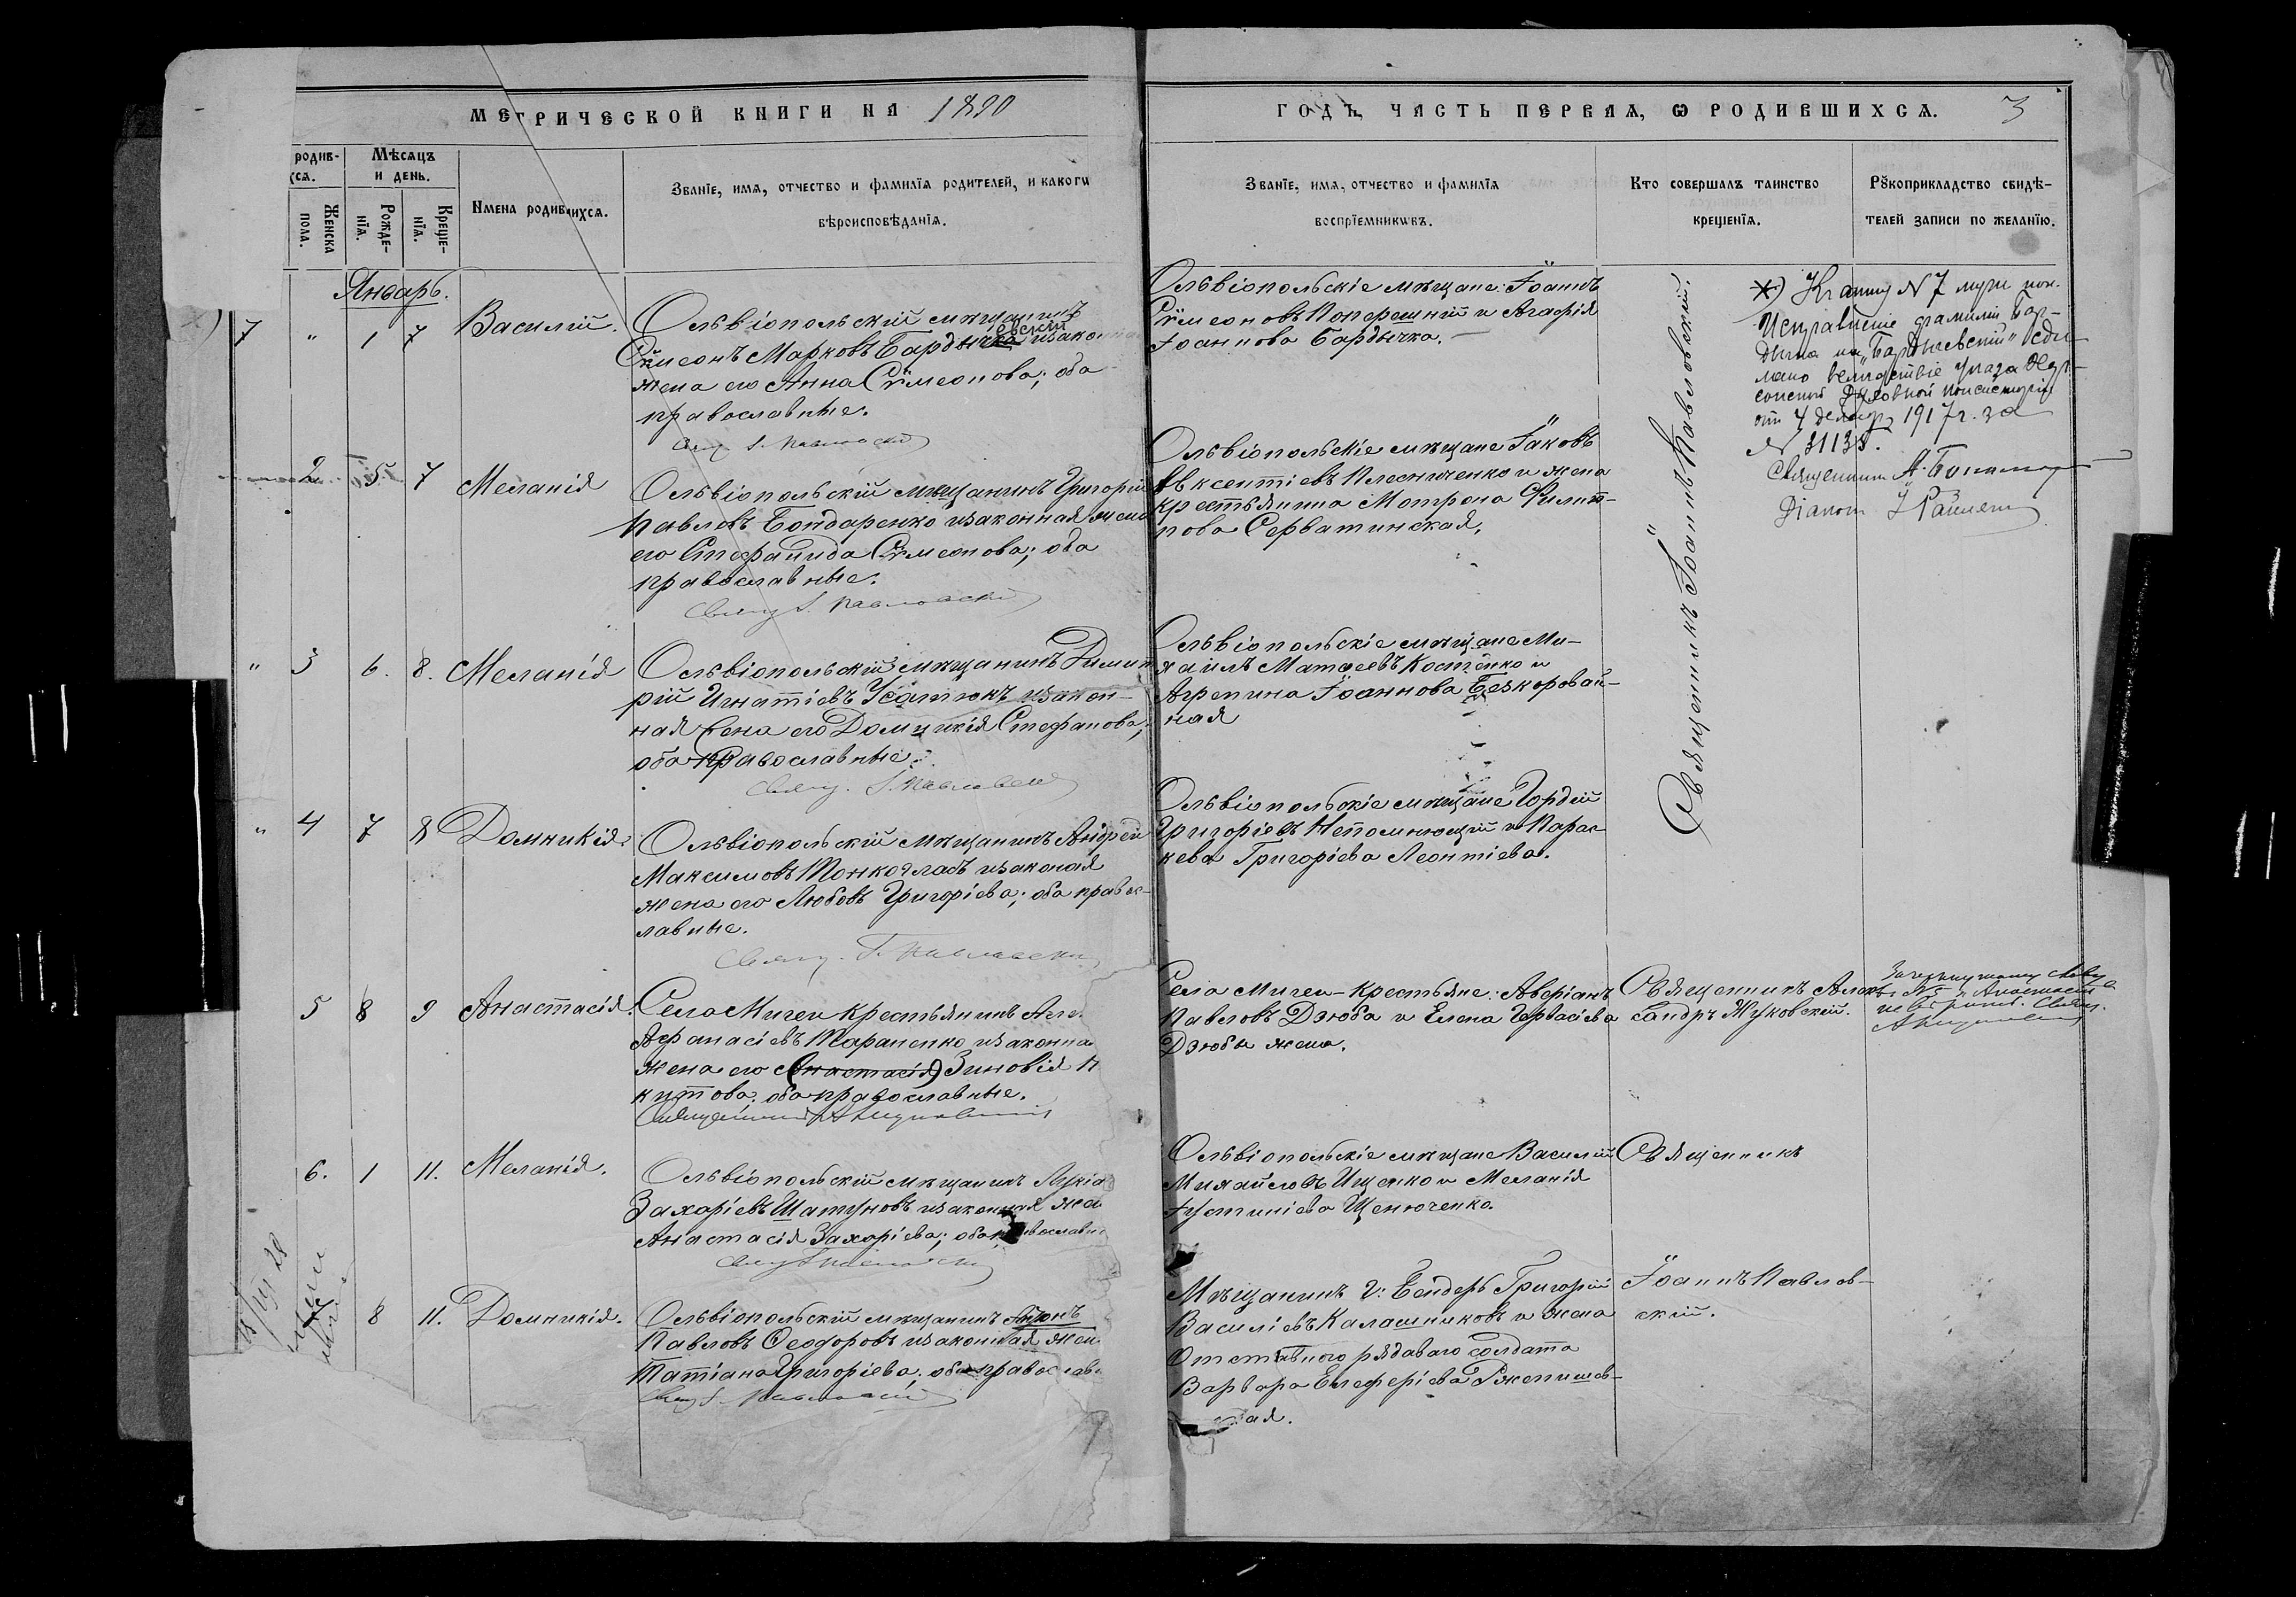 МЕТРИЧЕСКОЙ КНИГИ НА 1890
ГОДЪ, ЧАСТЬ ПЕРВАЯ, Ѡ РОДИВШИХСѦ. 3
родив-
сѧ.
Женска
пола.
Мѣсѧцъ
и день.
Рожде-
нїѧ.
Креще-
нїѧ.
Имена родившихсѧ.
Званїе, имѧ, отчество и фамилїѧ родителей, и какогѡ
вѣроисповѣданїѧ.
Званїе, имѧ, отчество и фамилїѧ
воспрїемникѡвъ.
Кто совершалъ таинство
крещенїѧ.
Рꙋкоприкладство свидѣ-
телей записи по желанїю.
Январь.
7 " 1 7 Василій.
Ольвіопольскій мѣщанинъ
Сѵмеонъ Марковъ Бардычевскій и законная
жена его Анна Сѵмеонова; оба
православные.
Свящ. І. Павловскій
Ольвіопольскіе мѣщане: Іоаннъ
Сѵмеоновъ Поперешній и Агафія
Іоаннова Бардычка.
Священникъ Іоаннъ Павловскій.
*) К № 7
Исправленіе фамиліи Бар-
дычка на „Бардычевскій" сдѣ-
лано вслѣдствіе указа Хер-
сонской Духовной Консисторіи
отъ 4 1917 г. за
№ 31135.
Священникъ А.
Діаконъ
2 5 7 Меланія
Ольвіопольскій мѣщанинъ Григорій
Павловъ Бондаренко и законная жена
его Стефанида Сѵмеонова; оба
православные.
Свящ. І. Павловскій
Ольвіопольскіе мѣщане Іаковъ
Авксентіевъ Плесниченко и жена
крестьянина Матрона Филип-
пова Серватинская.
" 3 6. 8. Меланія
Ольвіопольскій мѣщанинъ Димит
рій Игнатіевъ и закон-
ная жена его Домникія Стефанова;
оба православные.
Свящ. І. Павловскій
Ольвіопольскіе мѣщане Ми-
хаилъ Матѳеевъ Костенко и
Агрепина Іоаннова Безкоровай-
ная
" 4 7 8 Домникія.
Ольвіопольскій мѣщанинъ Андрей
Максимовъ и законая
жена его Любовь Григоріева; оба правос-
лавные.
Свящ. І. Павловскій
Ольвіопольскіе мѣщане Гордій
Григоріевъ Непомнющій и Парас-
кева Григоріева Леонтіева.
5 8 9 Анастасія.
Села Мигеи крестьянинъ
Аѳанасіевъ Тараненко и законна
жена его Анастасія Зиновія Н
китова; оба православные.
Священникъ А. Жуковскій
Села Мигеи - Крестьяне: Аверіанъ
Павловъ Дзюба и Елена Гервасіева
Дзюбы жена.
Священникъ Алек-
сандръ Жуковскій.
Зачеркнутому слову
№ 5 „Анастасія"
не вѣрить. Свящ.
А. Жуковскій
6. 1 11. Меланія.
Ольвіопольскій мѣщанинъ Лукіа
Захаріевъ Шатуновъ и законная жен
Анастасія Захаріева; оба православн
Свящ. І. Павловскій
Ольвіопольскіе мѣщане Василій
Михайловъ Ищенко и Меланія
Іустиніева Щенюченко.
Священникъ
8 11. Домникія.
Ольвіопольскій мѣщанинъ Антонъ
Павловъ Ѳеодоровъ и законная жен
Татіана Григоріева; оба православ
Свящ. І. Павловскій
Мѣщанинъ г. Бендеръ Григорій
Василіевъ Калашниковъ и жена
Отставного рядаваго солдата
Варвара Елеферіева
ая.
Іоаннъ Павлов-
скій.